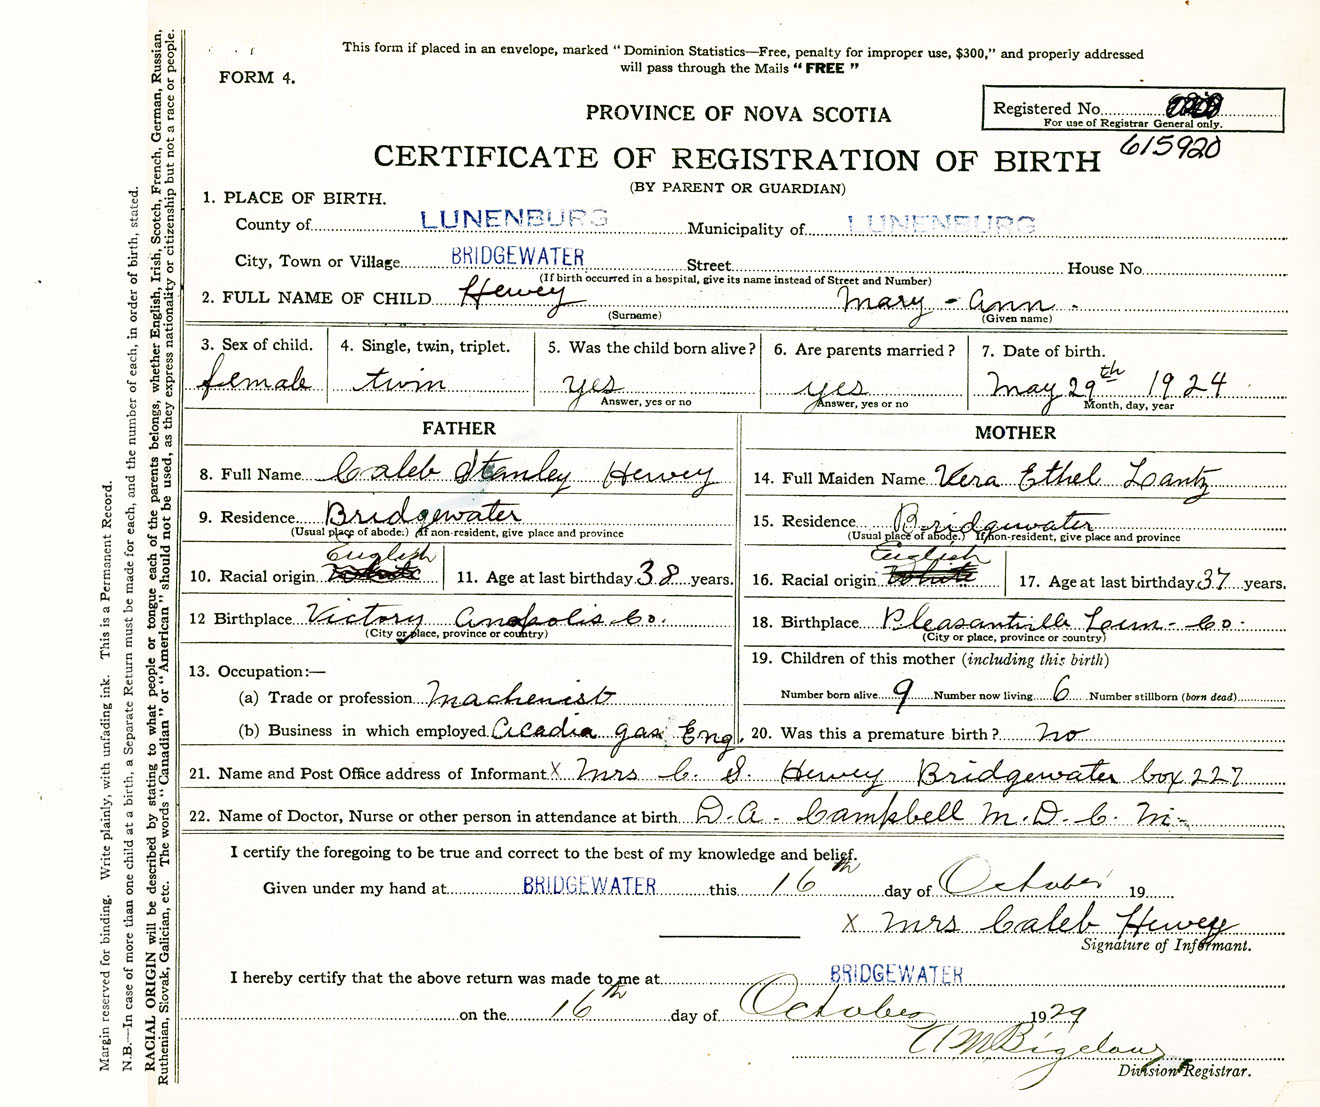 This form if placed in an envelope, marked “ Dominion Statistics—Free, penalty for improper use, $300,” and properly addressed
will pass through the Mails “ FREE ”
FORM 4.
PROVINCE OF NOVA SCOTIA
Registered No.
For use of Registrar General only.
615920
CERTIFICATE OF REGISTRATION OF BIRTH
(BY PARENT OR GUARDIAN)
1. PLACE OF BIRTH.
County of LUNENBURG Municipality of LUNENBURG
City, Town or Village BRIDGEWATER Street House No.
(If birth occurred in a hospital, give its name instead of Street and Number)
2. FULL NAME OF CHILD Hewey Mary - Ann -
(Surname) (Given name)
3. Sex of child. 4. Single, twin, triplet. 5. Was the child born alive? 6. Are parents married? 7. Date of birth.
female twin yes yes May 29th 1924
Answer, yes or no Answer, yes or no Month, day, year
FATHER MOTHER
8. Full Name Caleb Stanley Hewey 14. Full Maiden Name Vera Ethel Lantz
9. Residence Bridgewater 15. Residence Bridgewater
(Usual place of abode.) If non-resident, give place and province (Usual place of abode.) If non-resident, give place and province
English English
10. Racial origin White 11. Age at last birthday 38 years. 16. Racial origin White 17. Age at last birthday 37 years.
12 Birthplace Victory Anapolis Co. 18. Birthplace Pleasantville Lun- Co-
(City or place, province or country) (City or place, province or country)
19. Children of this mother (including this birth)
13. Occupation:—
(a) Trade or profession Machenist Number born alive 9 Number now living 6 Number stillborn (born dead)
(b) Business in which employed Acadia gas Eng. 20. Was this a premature birth? no
21. Name and Post Office address of Informant X Mrs C. S. Hewey Bridgewater box 227
22. Name of Doctor, Nurse or other person in attendance at birth D. A. Campbell M. D. C. M-
I certify the foregoing to be true and correct to the best of my knowledge and belief.
Given under my hand at BRIDGEWATER this 16th day of October 19
X Mrs Caleb Hewey
Signature of Informant.
I hereby certify that the above return was made to me at BRIDGEWATER
on the 16th day of October 1929
A M Bigelow
Division Registrar.
Margin reserved for binding. Write plainly, with unfading ink. This is a Permanent Record.
N.B.—In case of more than one child at a birth, a Separate Return must be made for each, and the number of each, in order of birth, stated.
RACIAL ORIGIN will be described by stating to what people or tongue each of the parents belongs, whether English, Irish, Scotch, French, German, Russian,
Ruthenian, Slovak, Galician, etc. The words “ Canadian ” or “ American ” should not be used, as they express nationality or citizenship but not a race or people.